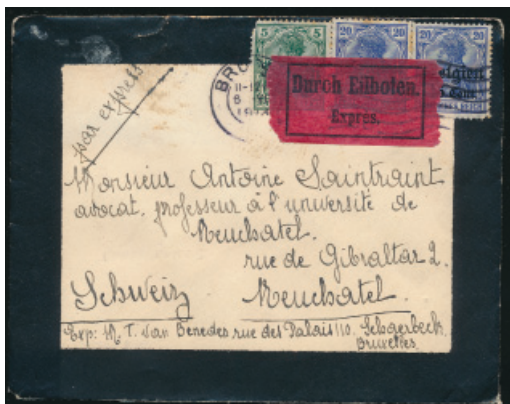 5 20 20
BRU
11-12
Belgien
Durch Eilboten.
Expres.
par express
Monsieur Antoine Saintraint
avocat, professeur à l'université de
Neuchatel.
rue de Gibraltar 2.
Schweiz Neuchatel.
Exp: M. T. Van Benedes rue des Palais 110. Schaerbeck
Bruxelles.